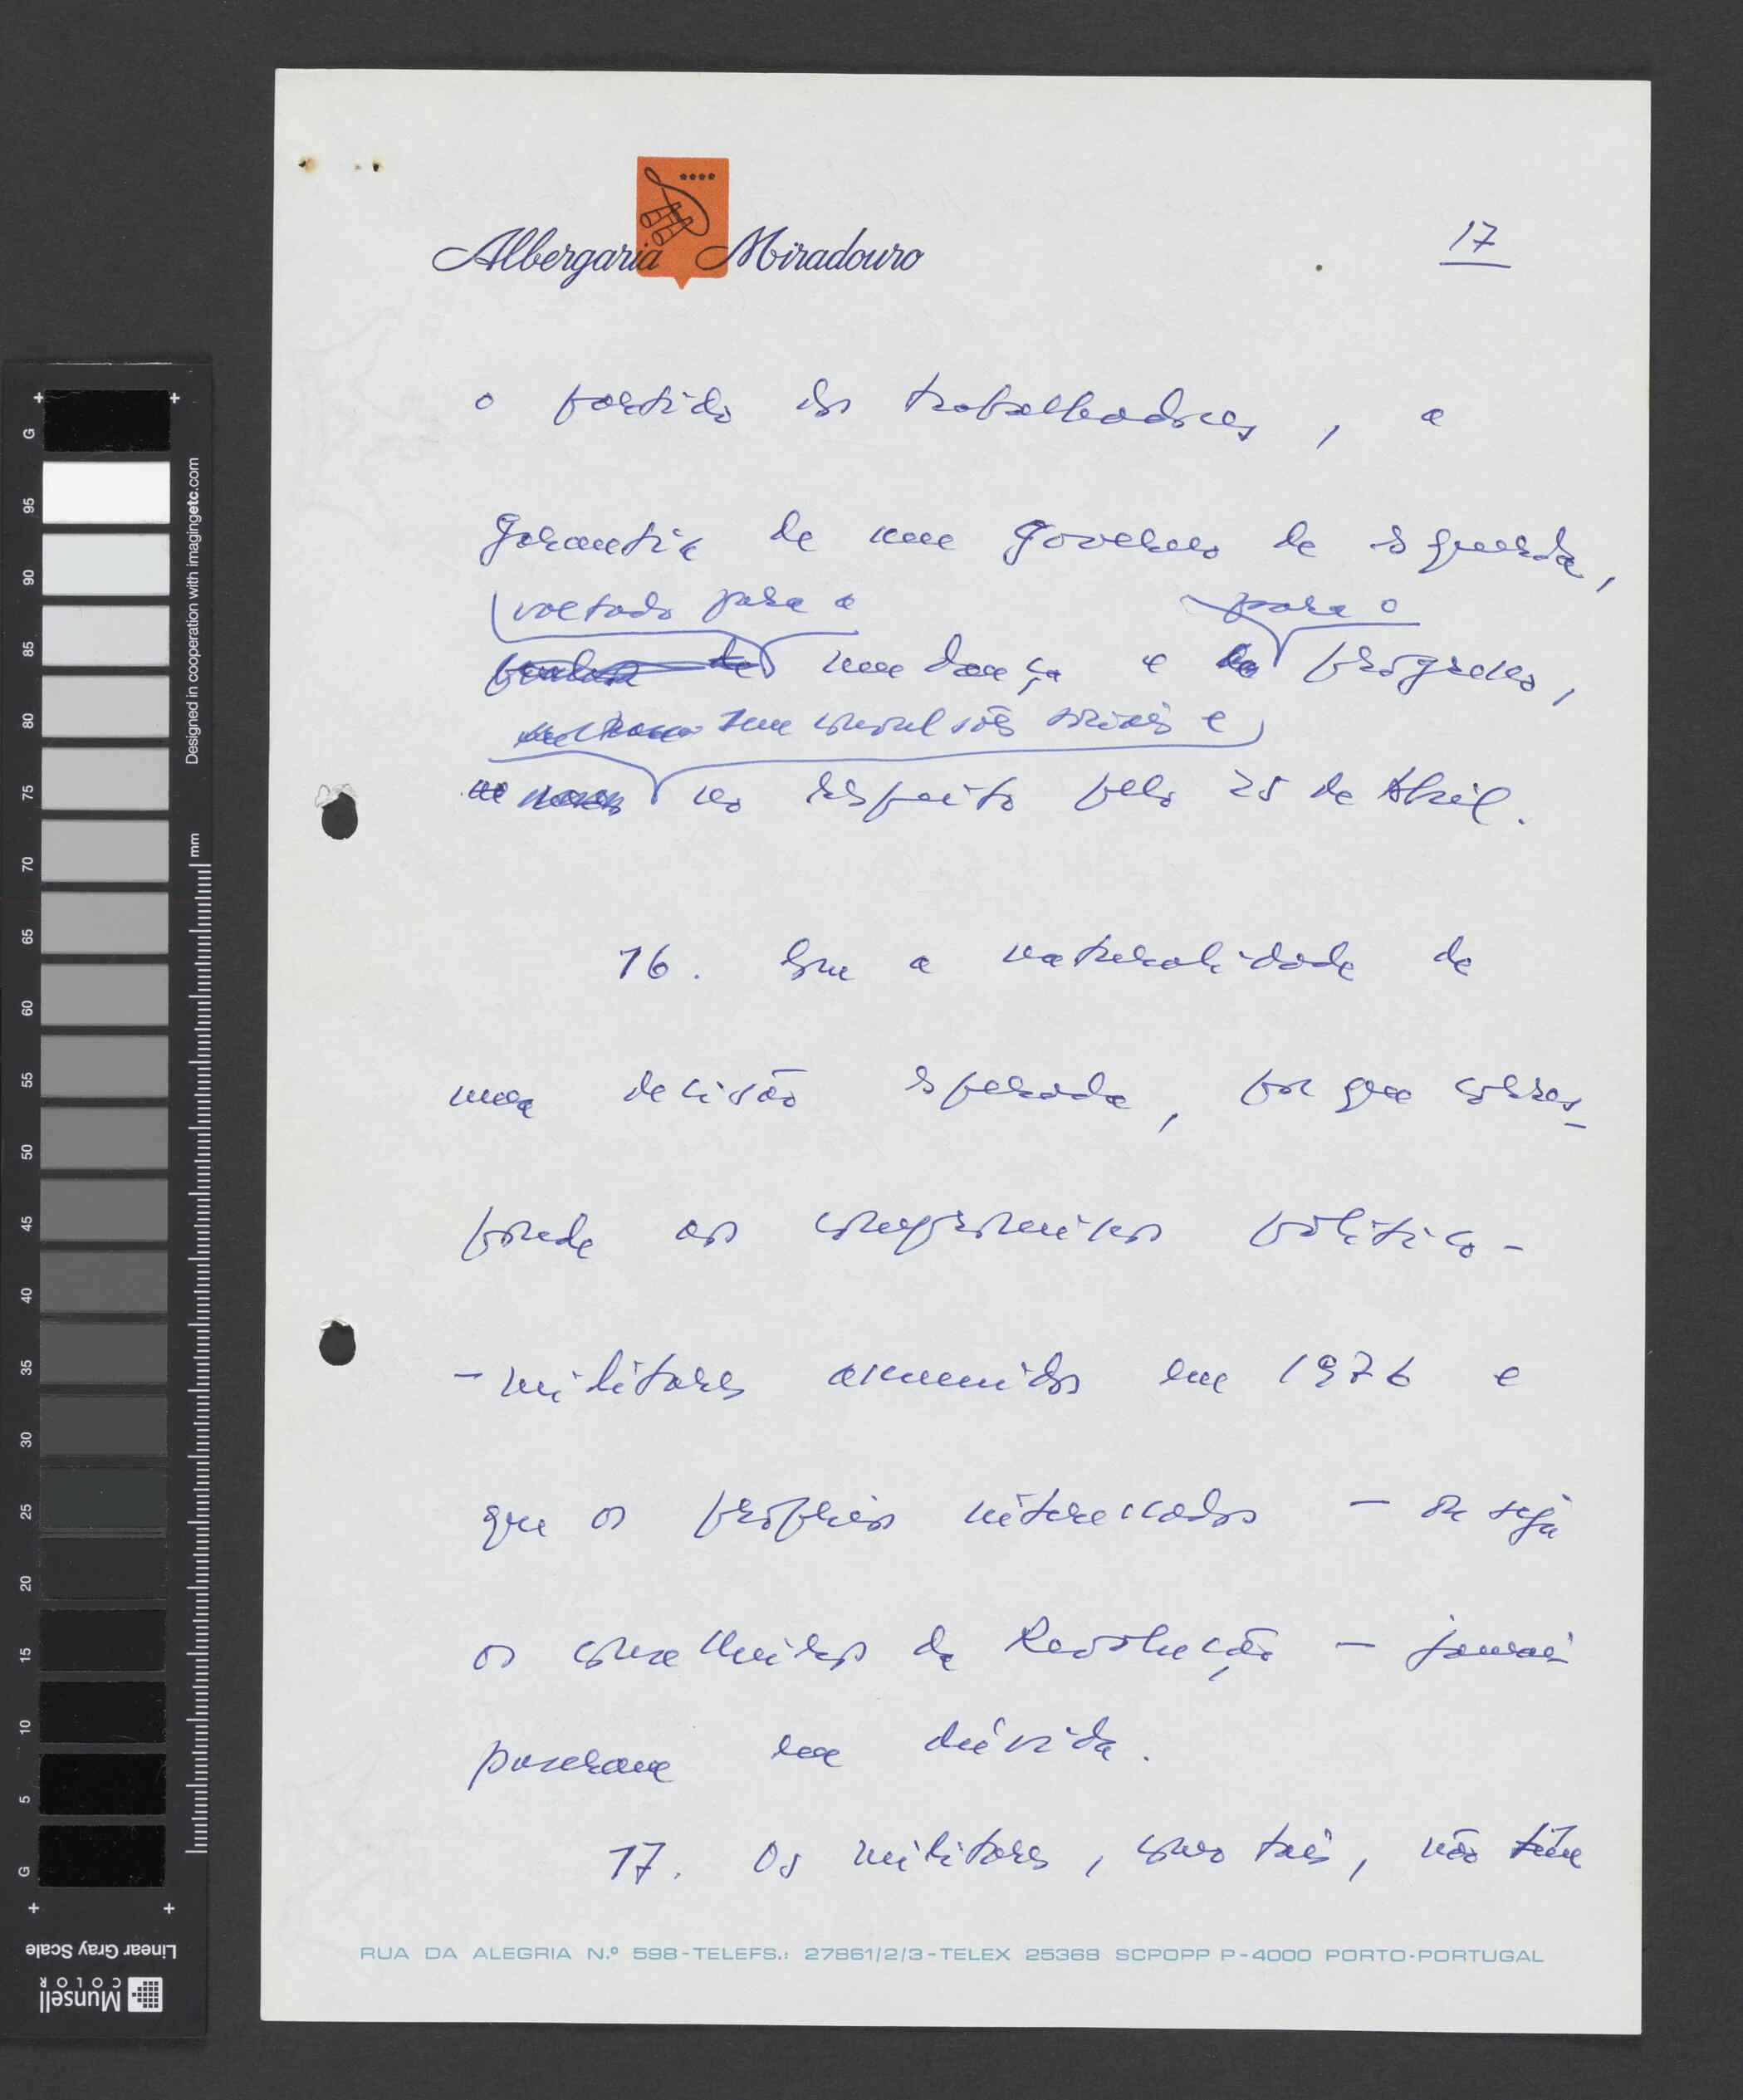 Albergaria Miradouro
17
o partido dos trabalhadores, a
garantia de um governo de esquerda,
voltado para a para o
mudança e progresso,
sem convulsões sociais e
no respeito pelo 25 de Abril.
16. Que a naturalidade de
uma decisão esperada, porque corres-
ponde aos compromissos político-
-militares assumidos em 1976 e
que os próprios interessados - ou seja
os conselheiros da Revolução - jamais
puseram em dúvida.
17. Os militares, como tais, não têm
RUA DA ALEGRIA N.º 598-TELEFS.: 27861/2/3-TELEX 25368 SCPOPP P-4000 PORTO-PORTUGAL
G 95 90 85 80 75 70 65 60 55 50 45 40 35 30 25 20 15 10 5 G
mm
Designed in cooperation with imagingetc.com
Linear Gray Scale
Munsell
COLOR